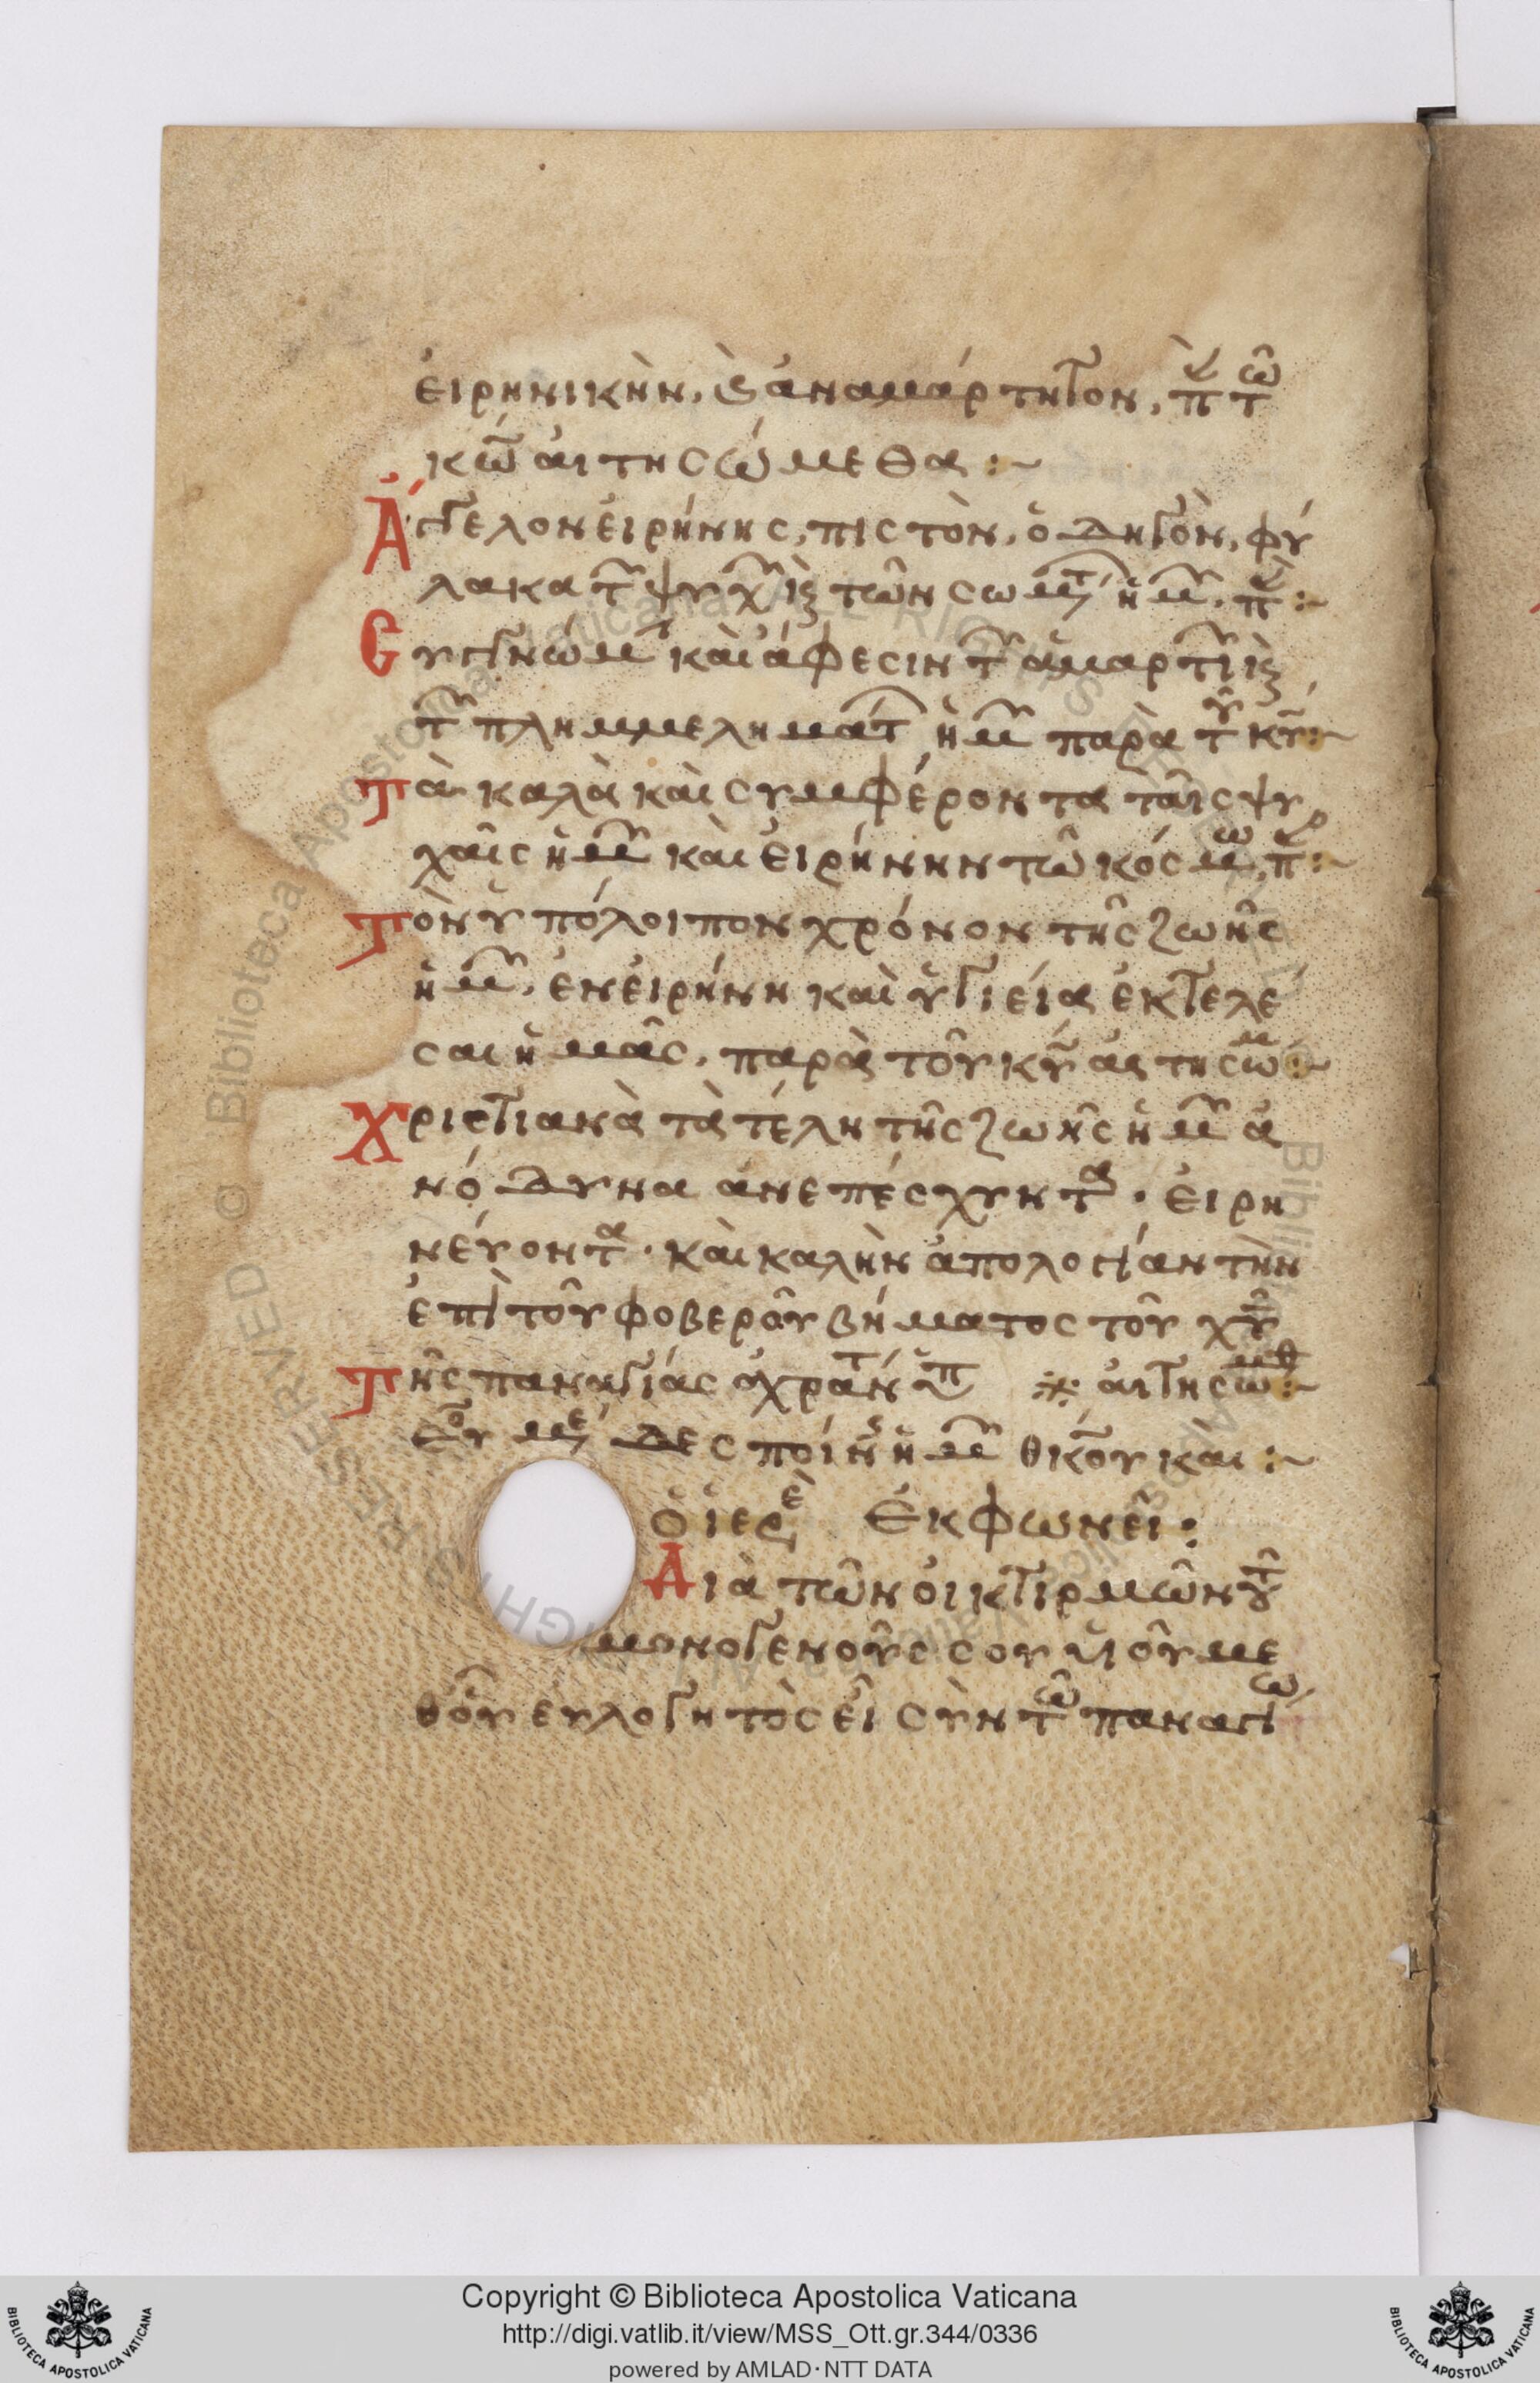 εἰρηνικὴν, κ(αὶ) ἀναμάρτητον, π τῶ
κῶ αἰτησώμεθα :~
Ἄγγελον εἰρήνης, πιστὸν, ὁδηγὸν, φύ
λακα τ ψυχ κ(αὶ) τῶν σωμτ ἡμ. π :~
Συγγνώμ καὶ ἄφεσιν τ ἁμαρτι κ(αὶ)
τ πλημμελημάτ ἡμ παρὰ τοῦ κυ :~
Τὰ καλὰ καὶ συμφέροντα ταῖς ψυ
χαῖς ἡμ καὶ εἰρήνην τῶ κόσμω, π :~
Τὸν ὑπόλοιπον χρόνον τῆς ζωῆς
ἡμ, ἐν εἰρήνη καὶ ὑγιεία ἐκτελέ
σαι ἡμᾶς, παρὰ τοῦ κυ αἰτησώμ :~
Χριστιανὰ τὰ τέλη τῆς ζωῆς ἡμ ἀ
νόδυνα ἀνεπέσχυντα · εἰρη
νεύοντα · καὶ καλὴν ἀπολογίαν τὴν
ἐπὶ τοῦ φοβεροῦ βήματος τοῦ χυ
Τῆς παναγίας ἀχράντ ὑπ ※ αἰτησώμθ :~
δεσποίν ἡμ θκου καὶ :~
ὁ ἱερε ἐκφωνεῖ :
Διὰ τῶν οἰκτιρμῶν τοῦ
μονογενοῦς σου υἱοῦ με
θ' οὗ εὐλογητὸς εἶ σὺν τῶ παναγίω
Copyright © Biblioteca Apostolica Vaticana
http://digi.vatlib.it/view/MSS_Ott.gr.344/0336
powered by AMLAD·NTT DATA
BIBLIOTECA APOSTOLICA VATICANA
BIBLIOTECA APOSTOLICA VATICANA